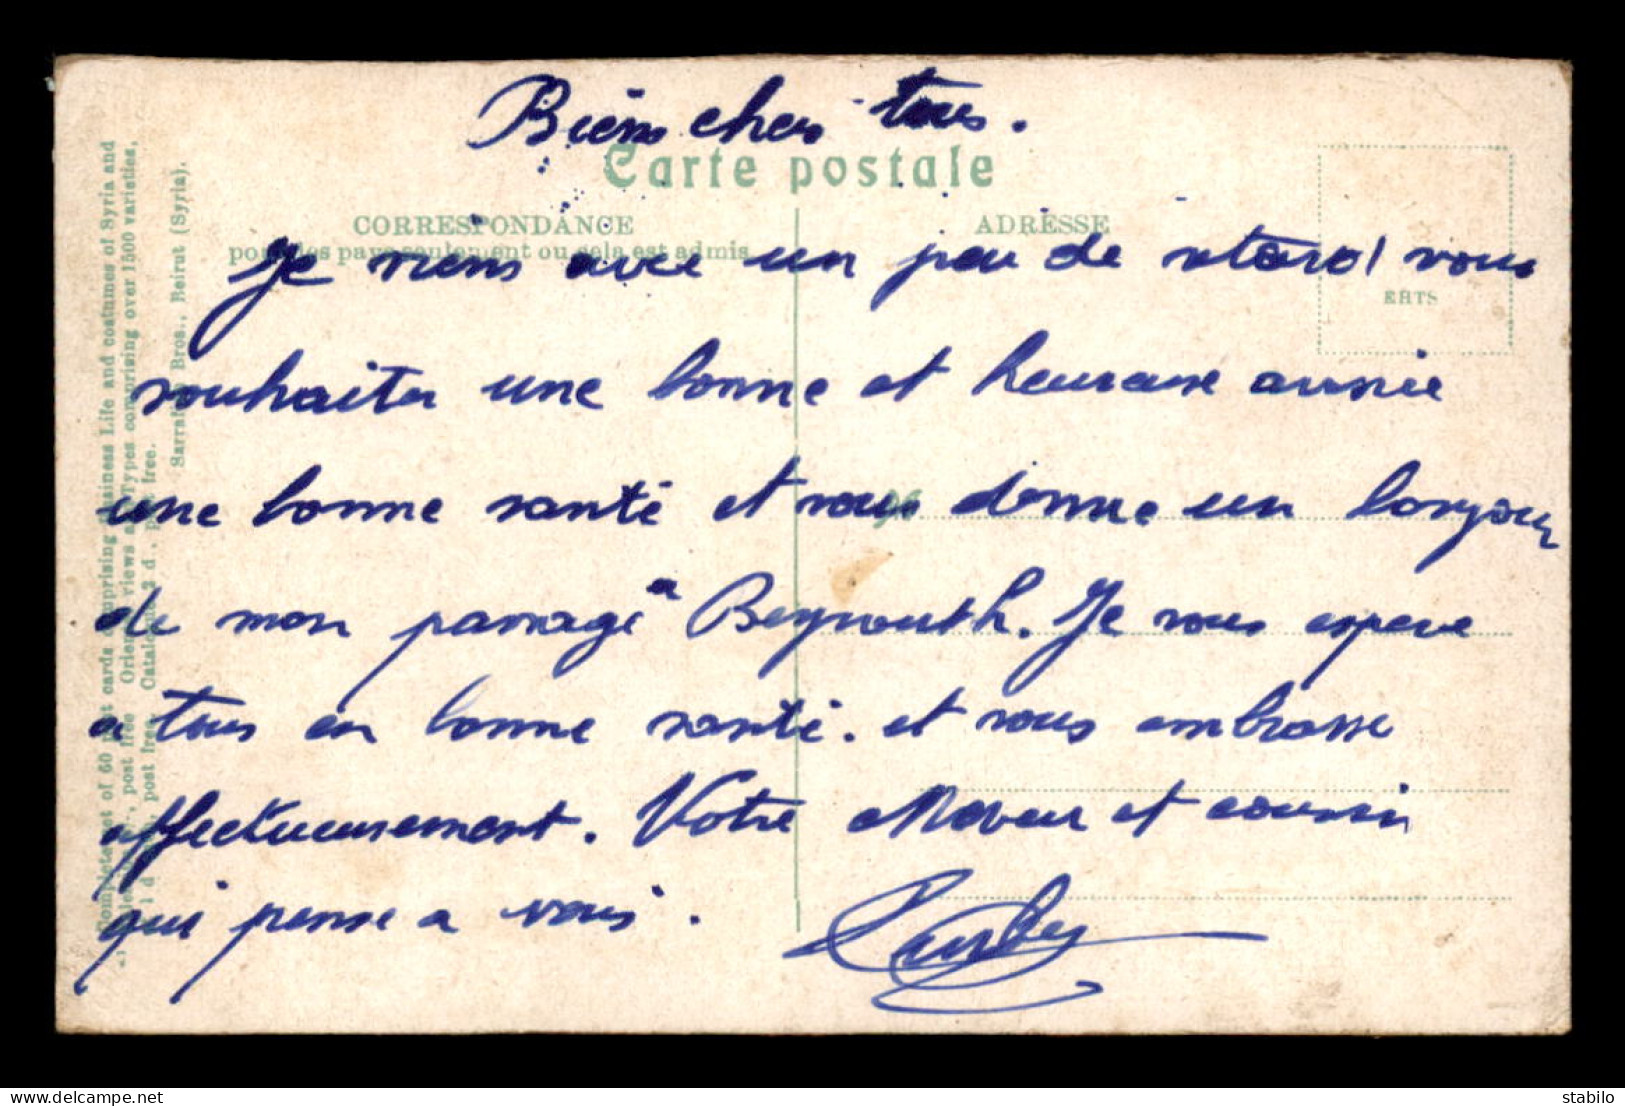 Bien chers tous.
Carte postale
CORRESPONDANCE
pour les pays seulement ou cela est admis
ADRESSE
EHTS
Je viens avec un peu de retard vous
souhaiter une bonne et heureuse année
une bonne santé et vous donne un bonjour
de mon passage a Beyrouth. Je vous espere
a tous en bonne santé. et vous embrasse
affectueusement. Votre et coussin
qui pense a vous.
Complete set of 60 cards comprising Business Life and costumes of Syria and
post free Orient views and Types comprising over 1500 varieties,
1 d post free. Catalogue 3 d, post free.
Sarrafian Bros., Beirut (Syria).
stabilo